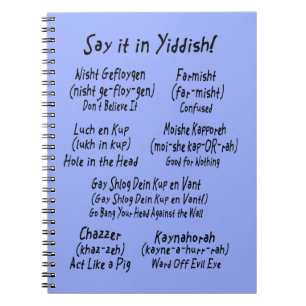 Say it in Yiddish!
Nisht Gefloygen
(nisht ge-floy-gen)
Don't Believe It
Farmisht
(far-misht)
Confused
Luch en Kup
(lukh in kup)
Hole in the Head
Moishe Kapporeh
(moi-she kap-OR-rah)
Good for Nothing
Gay Shlog Dein Kup en Vant
(Gay Shlog Dein Kup en Vant!)
Go Bang Your Head Against the Wall
Chazzer
(khaz-zeh)
Act Like a Pig
Kaynahorah
(kayne-a-hurr-rah)
Ward Off Evil Eye